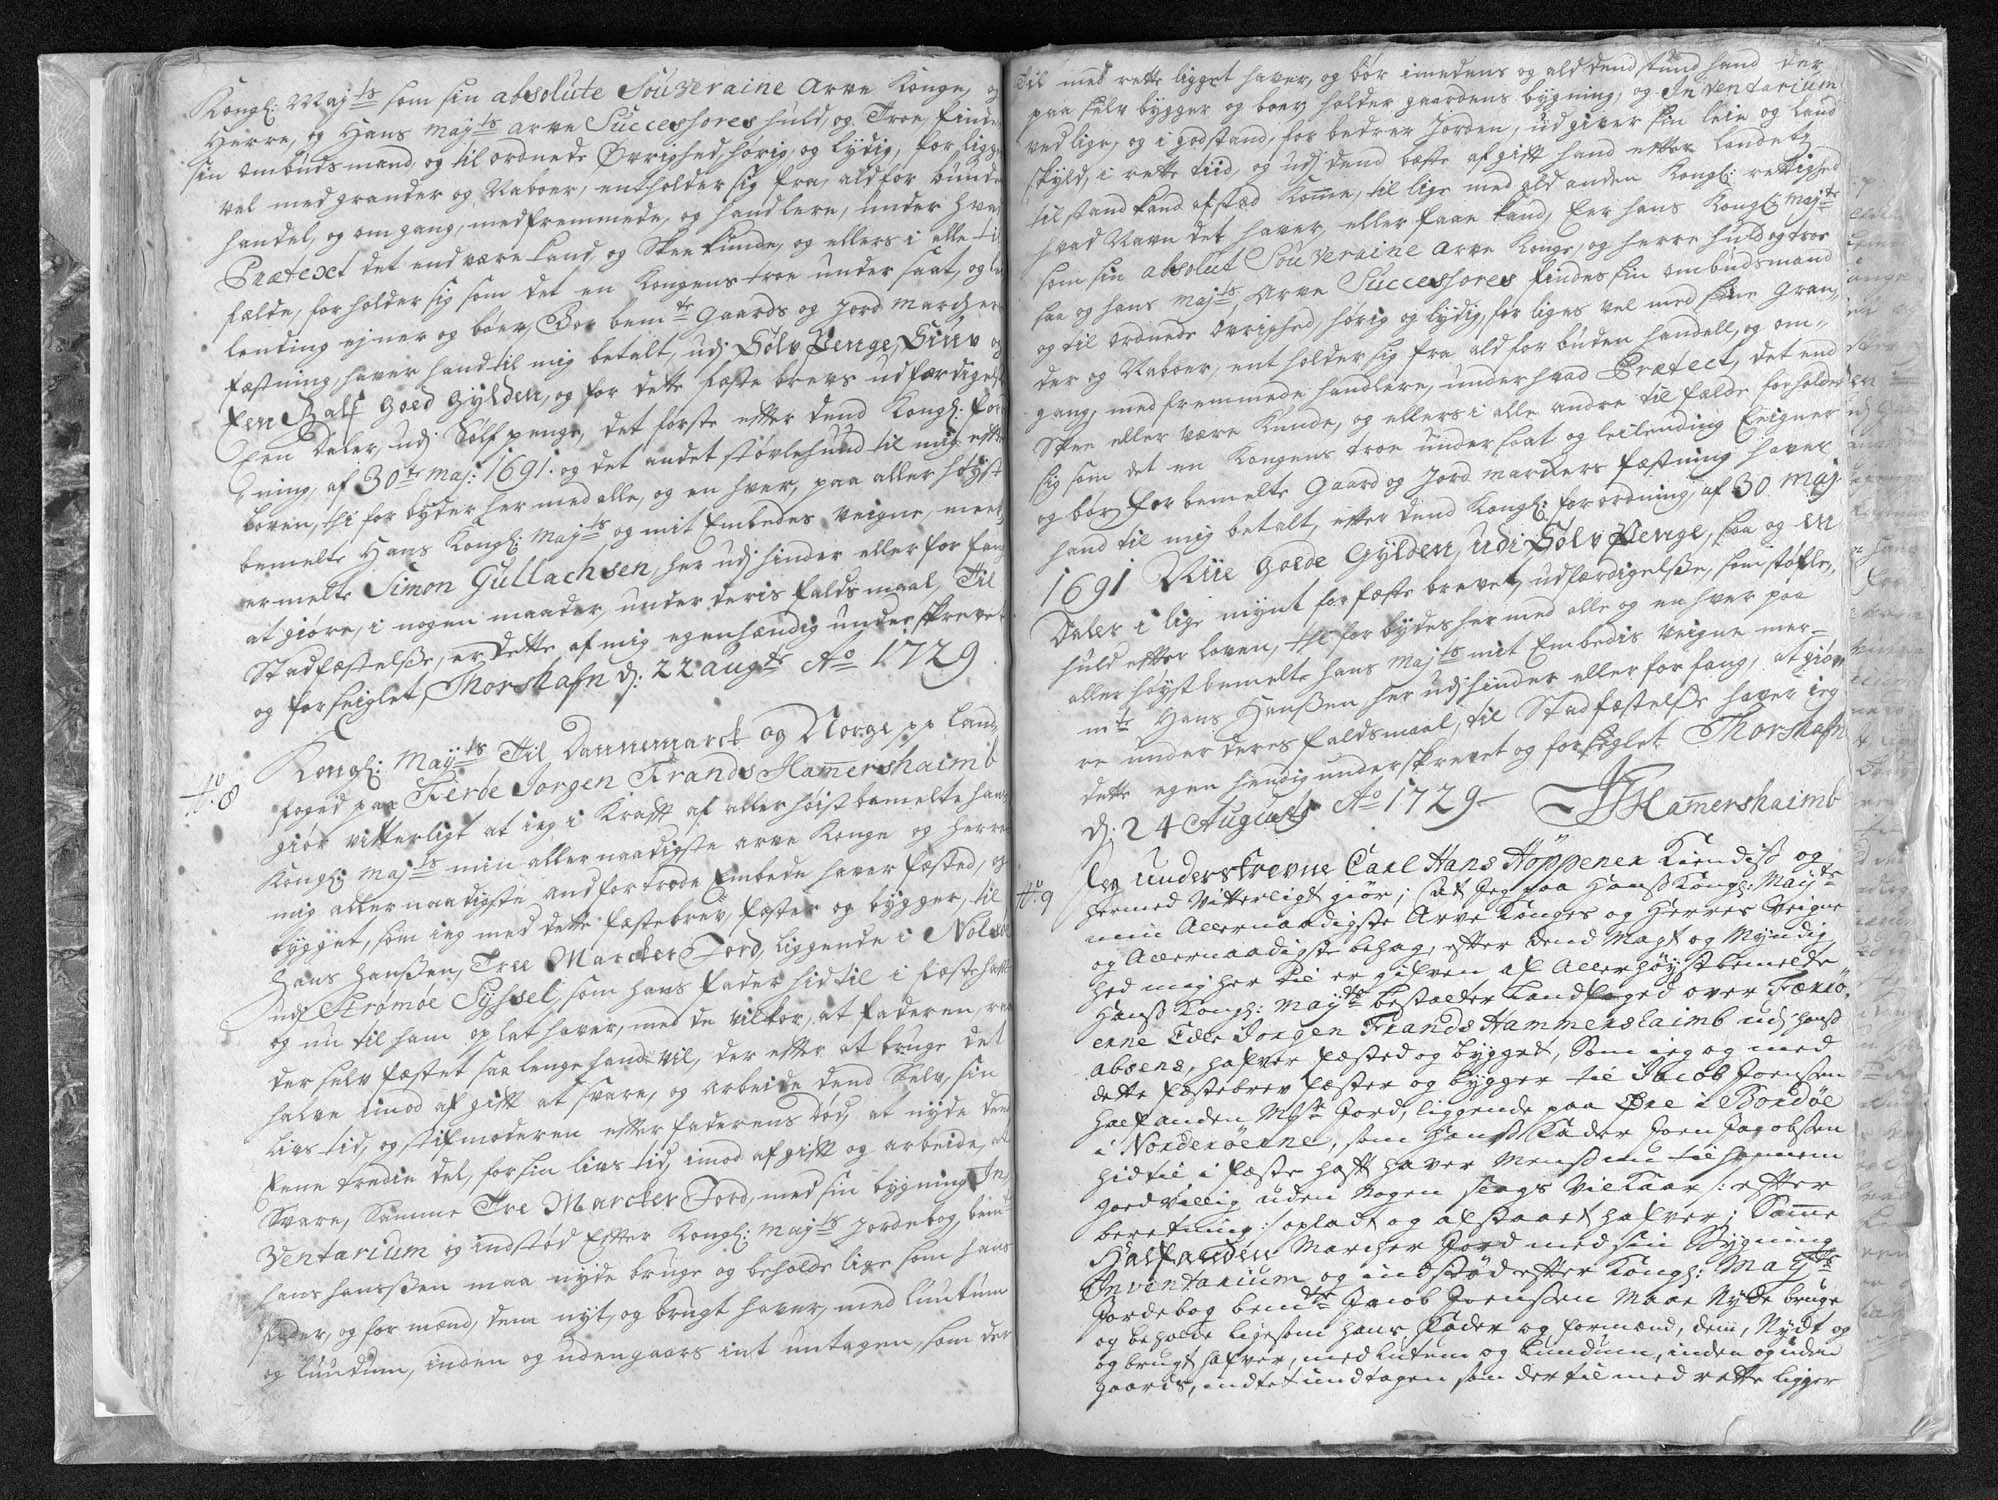 Kongl: Mayts som sin absolute Souveraine Arve Konge, og
Herre, og Hans Mayts arve Successores huld, og Troe, finde
sin ombudsmand, og til ordnede Øvrighed, hørig, og lydig, for liges
vel med grander og Naboer, entholder sig fra, ald for buden
handel, og omgang, med fremmede, og handlere, under hvad
Prætext det end være kand, og Skee kunde, og ellers i alle til
fælde, forholder sig som det en Kongens troe under saat, og lei
lending eyner og bøer, For bemte Gaards og Jord Marckers
fæstning, haver hand til mig betalt, udj Sölv Penge, Siuv og
Een Half Goed Gylden, og for dette fæste brevs udfærdigelse
Een Daler, udj Sølf penge, det første efter dend Kongl: forord
ning, af 30te Maj: 1691. og det andet støvlehund til mig efter
loven, thi for byder her med alle, og en hver, paa aller høyst
bemelte Hans Kongl: Mayts og mit Embedes Veigne, meer
ermelte Simon Gullachsen, her udj hinder eller for fang
at giøre, i nogen maader, under deris faldsmaal, Til
Stadfæstelse, er dette af mig egenhændig under skrevet
og forseiglet, Thorshafn d: 22 augts Ao 1729.
No 8
Kongl: Mayts Til Dannemarck og Norge pp Land
foged paa Færøe Jorgen Frands Hamershaimb
giør vitterligt at ieg i Kraft af aller høist bemelte hans
Kongl: Mayts min aller naadigste arve Konge og herres
mig aller naadigste andfortrode Embede haver fæsted, og
bygget, som ieg med dette fæstebrev, fæster og bygger, til
Hans Hanssen, Tree Marcker Jord, liggende i Nolsøe
udj Strömöe Syssel, som hans fader hid til i fæste haft
og nu til ham oplat haver, med de vilkor, at faderen
der selv fæstet saa lenge hand vil, der efter at bruge det
halve imod afgift at svare, og arbeide dend Selv, sin
livs tid, og stifmoderen efter faderens død, at nyde dend
Eene tredie del, for sin livs tid, imod afgift og arbeide, at
Svare, Samme Tre Marcker Jord, med sin bygning In
Ventarium og indstød Efter Kongl: Mayts Jordebog, bemte
hans hanssen maa nyde bruge og beholde lige som hans
fader, og for mænd, dem nyt, og brugt haver, med luutum
og luundum, inden og udengaars int untagen, som der
til med rette ligget haver, og bör imedens og ald dend stund hand der
paa selv bygger og boer, holder gaardens bygning, og Inventarium
ved lige, og i god stand, for bedrer Jorden, udgiver sin leie og land
skyld, i rette tiid, og udj dend beste afgift hand efter landets
til stand kand afsted komme, til lige med ald anden Kongl: rettighed
hvad Navn det haver, eller faae kand, Eer hans Kongl: Mayts
som sin absolut Souveraine Arve Konge, og herre huld og troe
saa og hans Mayts, Arve Successores findes sin ombudsmand
og til ordnede øvrighed, hørig og lydig, for liges vel med sine Gran
der og Naboer, entholder sig fra ald for buden handell, og om
gang, med fremmede handlere, under hvad Prætext, det end
Skee eller være kunde, og ellers i alle andre til falde forholder
sig som det en Kongens troe under saat og leilending Eigner
og bør, for bemelte Gaard og Jord marckers fæstning haver
hand til mig betalt, efter dend Kongl: forordning, af 30 Maj
1691 Niie Goede Gylden, udi Sölv Penge, saa og en
Daler i lige mynt for fæste brevet, udfærdigelsse, som støfle,
huld efter loven, thi forbydes her med alle og en hver paa
aller høyst bemelte hans Mayts mit Embedis Veigne mer
mte Hans Hanssen her udj hinder eller for fang, at giøe
re under deres faldsmaal, til Stadfæstelsse haver ieg
dette egen hendig underskrevet og forseglet Thorshafn
d: 24 Augusti Ao 1729 JFHamershaimb
No 9
Jeg underskrevne Carl Hans Höppener Kiendiss og
hermed vitterligt giør; at Jeg paa Hanss Kongl: Mayts
min Allernaadigste Arve Konges og Herres Veigne
og Allernaadigste behag, efter dend Magt og Myndig
hed mig her til er gifven af Allerhöyst bemelde
Hanss Kongl: Mayts bestalter Landfoged over Færiö
erne Edle Jorgen Frands Hammershaimb udj hans
absens, hafver fæsted og bygget, Som ieg og med
dette fæstebrev fæster og bygger til Jacob Joenssen
Half anden Mk Jord, liggende paa Øre i Bordöe
i Norderöerne, som Hanss Fader Joen Jacobssen
hidtil i fæste haft haver Menss nu til hannem
goedvillig uden Nogen slags Vilkaar /: efter
beretning :/ opladt og afstaaet hafver; Samme
Halfanden Marcker Jord med sin Bygning
Inventarium og indstöd efter Kongl: Mayts
Jordebog bemte Jacob Joenssen Maae Nyde bruge
og beholde ligesom hans Fader og formænd, dem, Nydt og
og brugt hafver, med lutum og lundum, inden og uden
gaards, indtet undtagen som der til med rette ligger